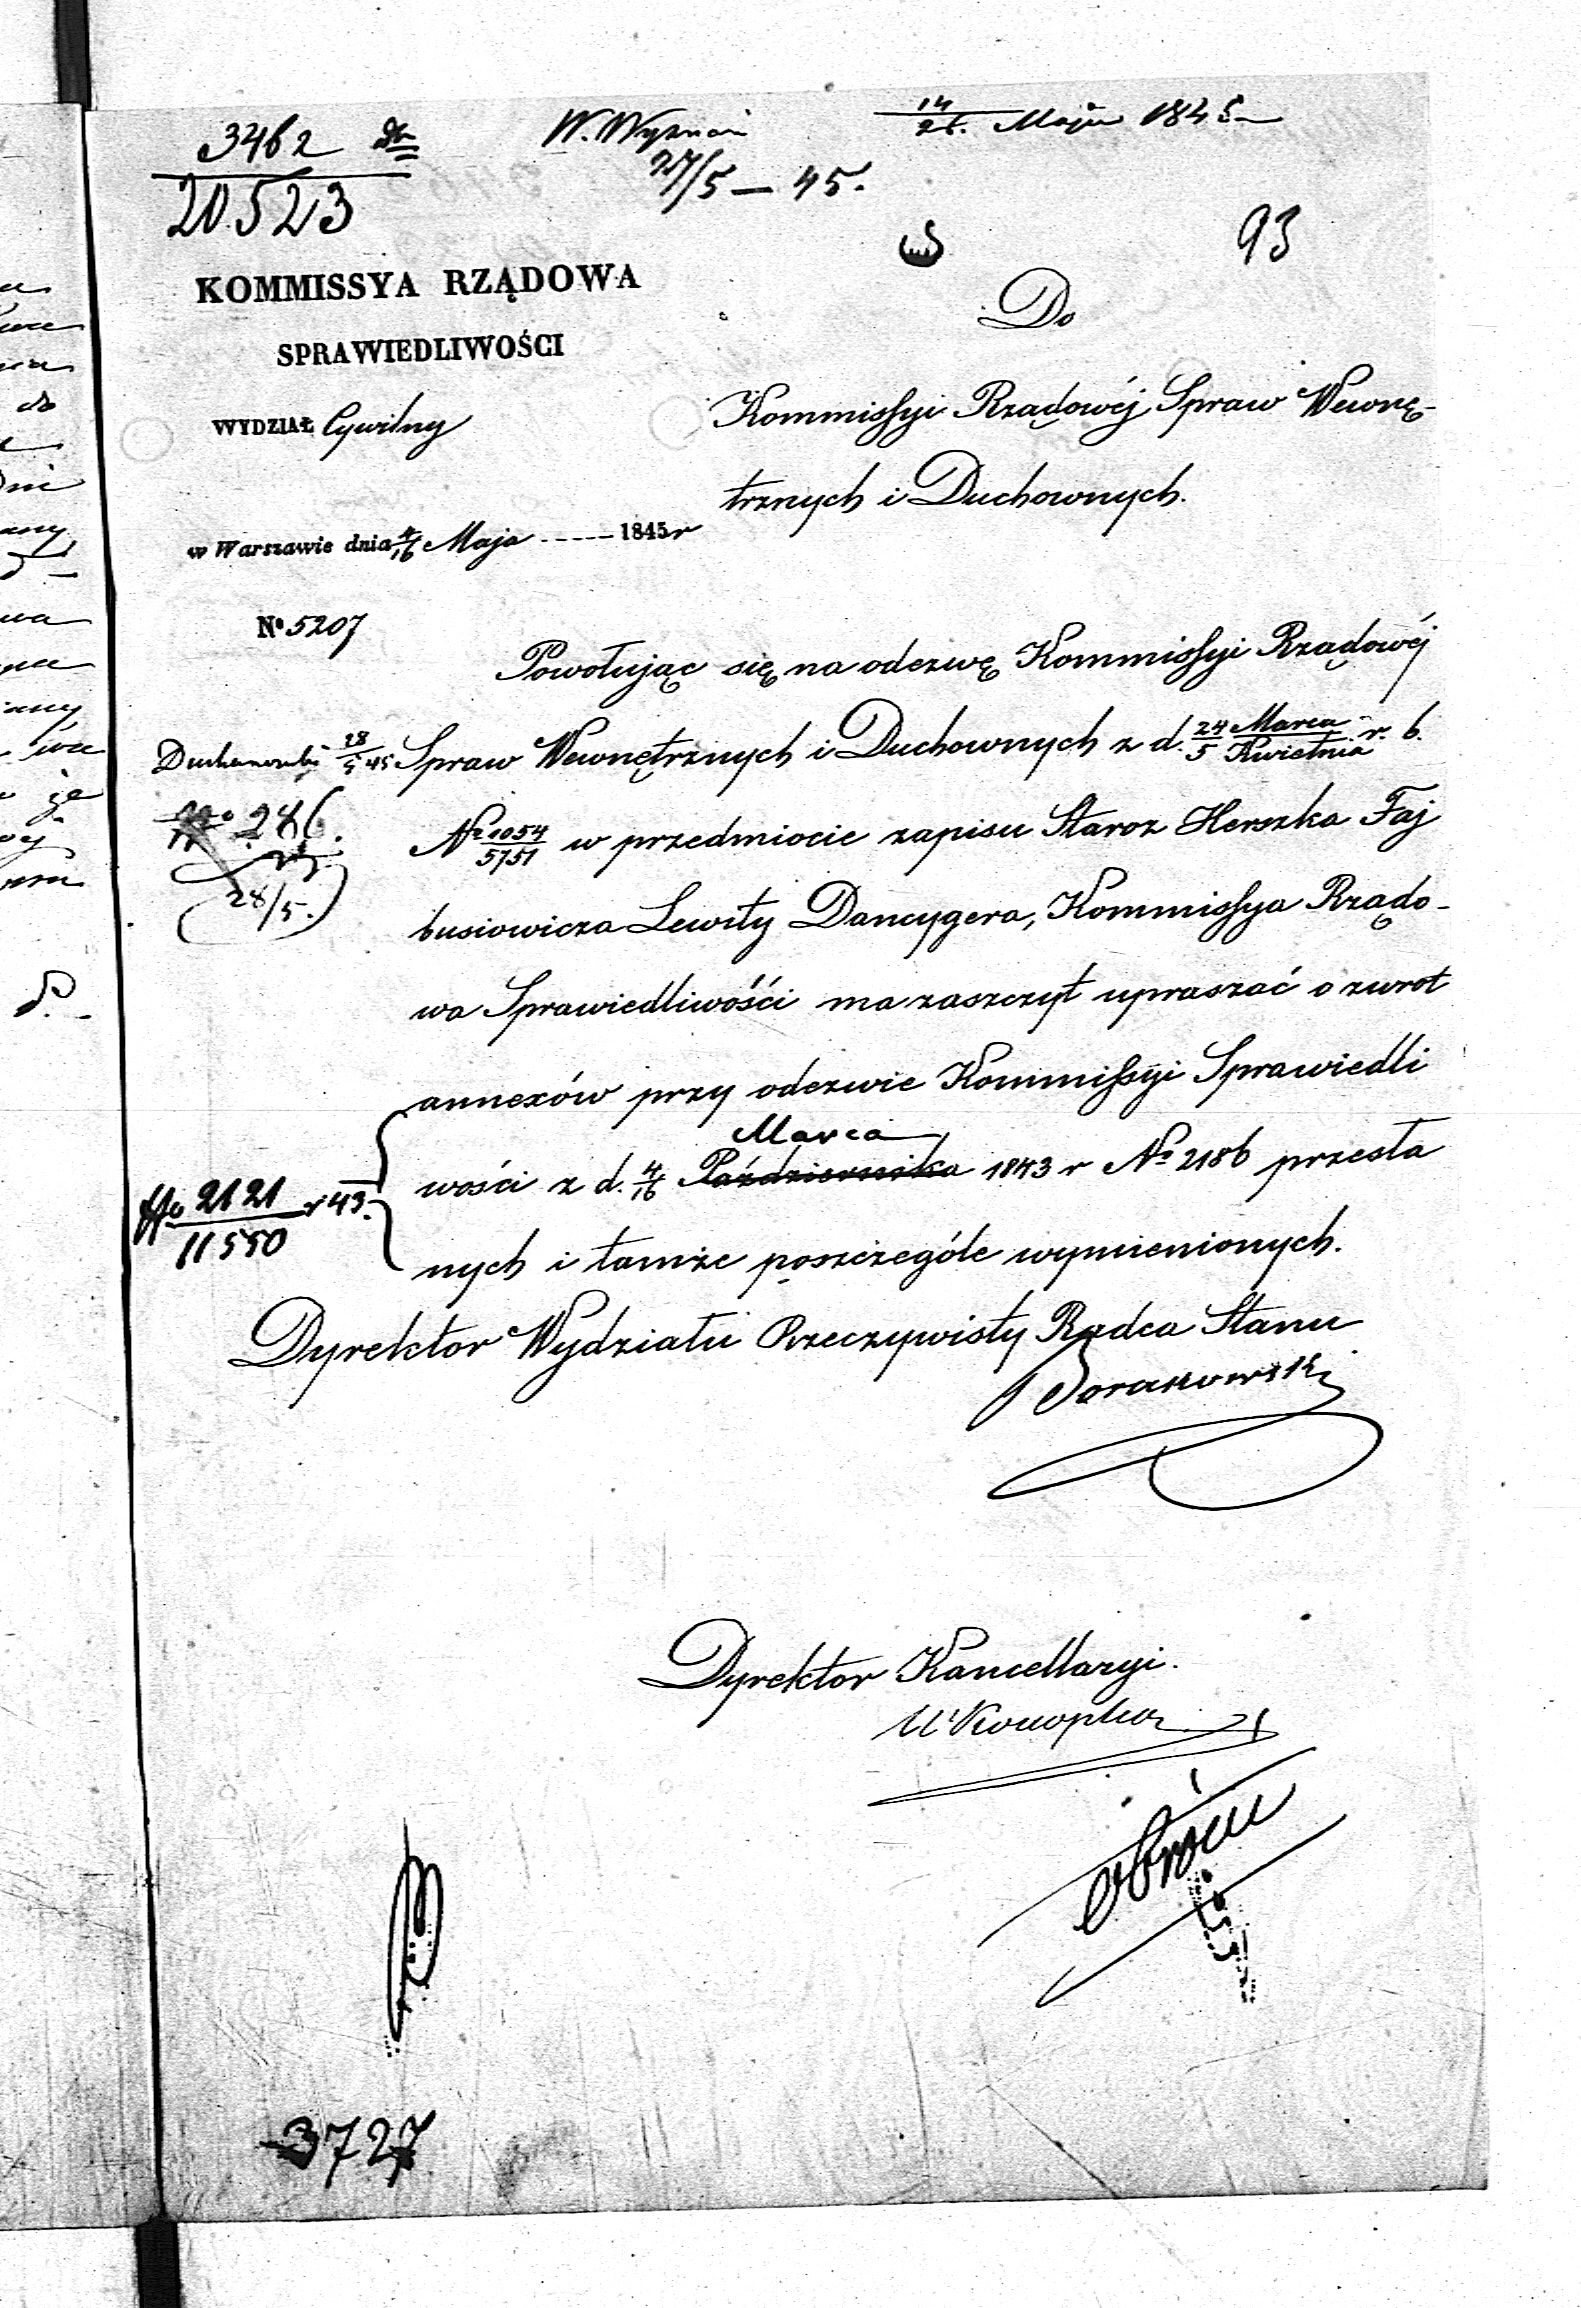 3462
20523
W. Wyznań
27/5 — 45.
14/26. Maja 1845
93
KOMMISSYA RZĄDOWA
SPRAWIEDLIWOŚCI
WYDZIAŁ Cywilny
w Warszawie dnia 4/16 Maja 1845 r
No 5207
Do
Kommissyi Rządowéj Spraw Wewnę-
trznych i Duchownych.
Powołując się na odezwę Kommissyi Rządowéj
Spraw Wewnętrznych i Duchownych z d. 24 Marca / 5 Kwietnia r. b.
No 1054/5751 w przedmiocie zapisu Staroz Herszka Faj
busiowicza Lewity Dancygera, Kommissya Rządo-
wa Sprawiedliwości ma zaszczyt upraszać o zwrot
annexów przy odezwie Kommissyi Sprawiedli
Marca
wości z d. 4/16 Października 1843 r No 2186 przesła
nych i tamże poszczególe wymienionych.
28/5 45
286.
28/5.
No 2121/11550 r 43.
Dyrektor Wydziału Rzeczywisty Radca Stanu
Dyrektor Kancellaryi.
obróć
3727